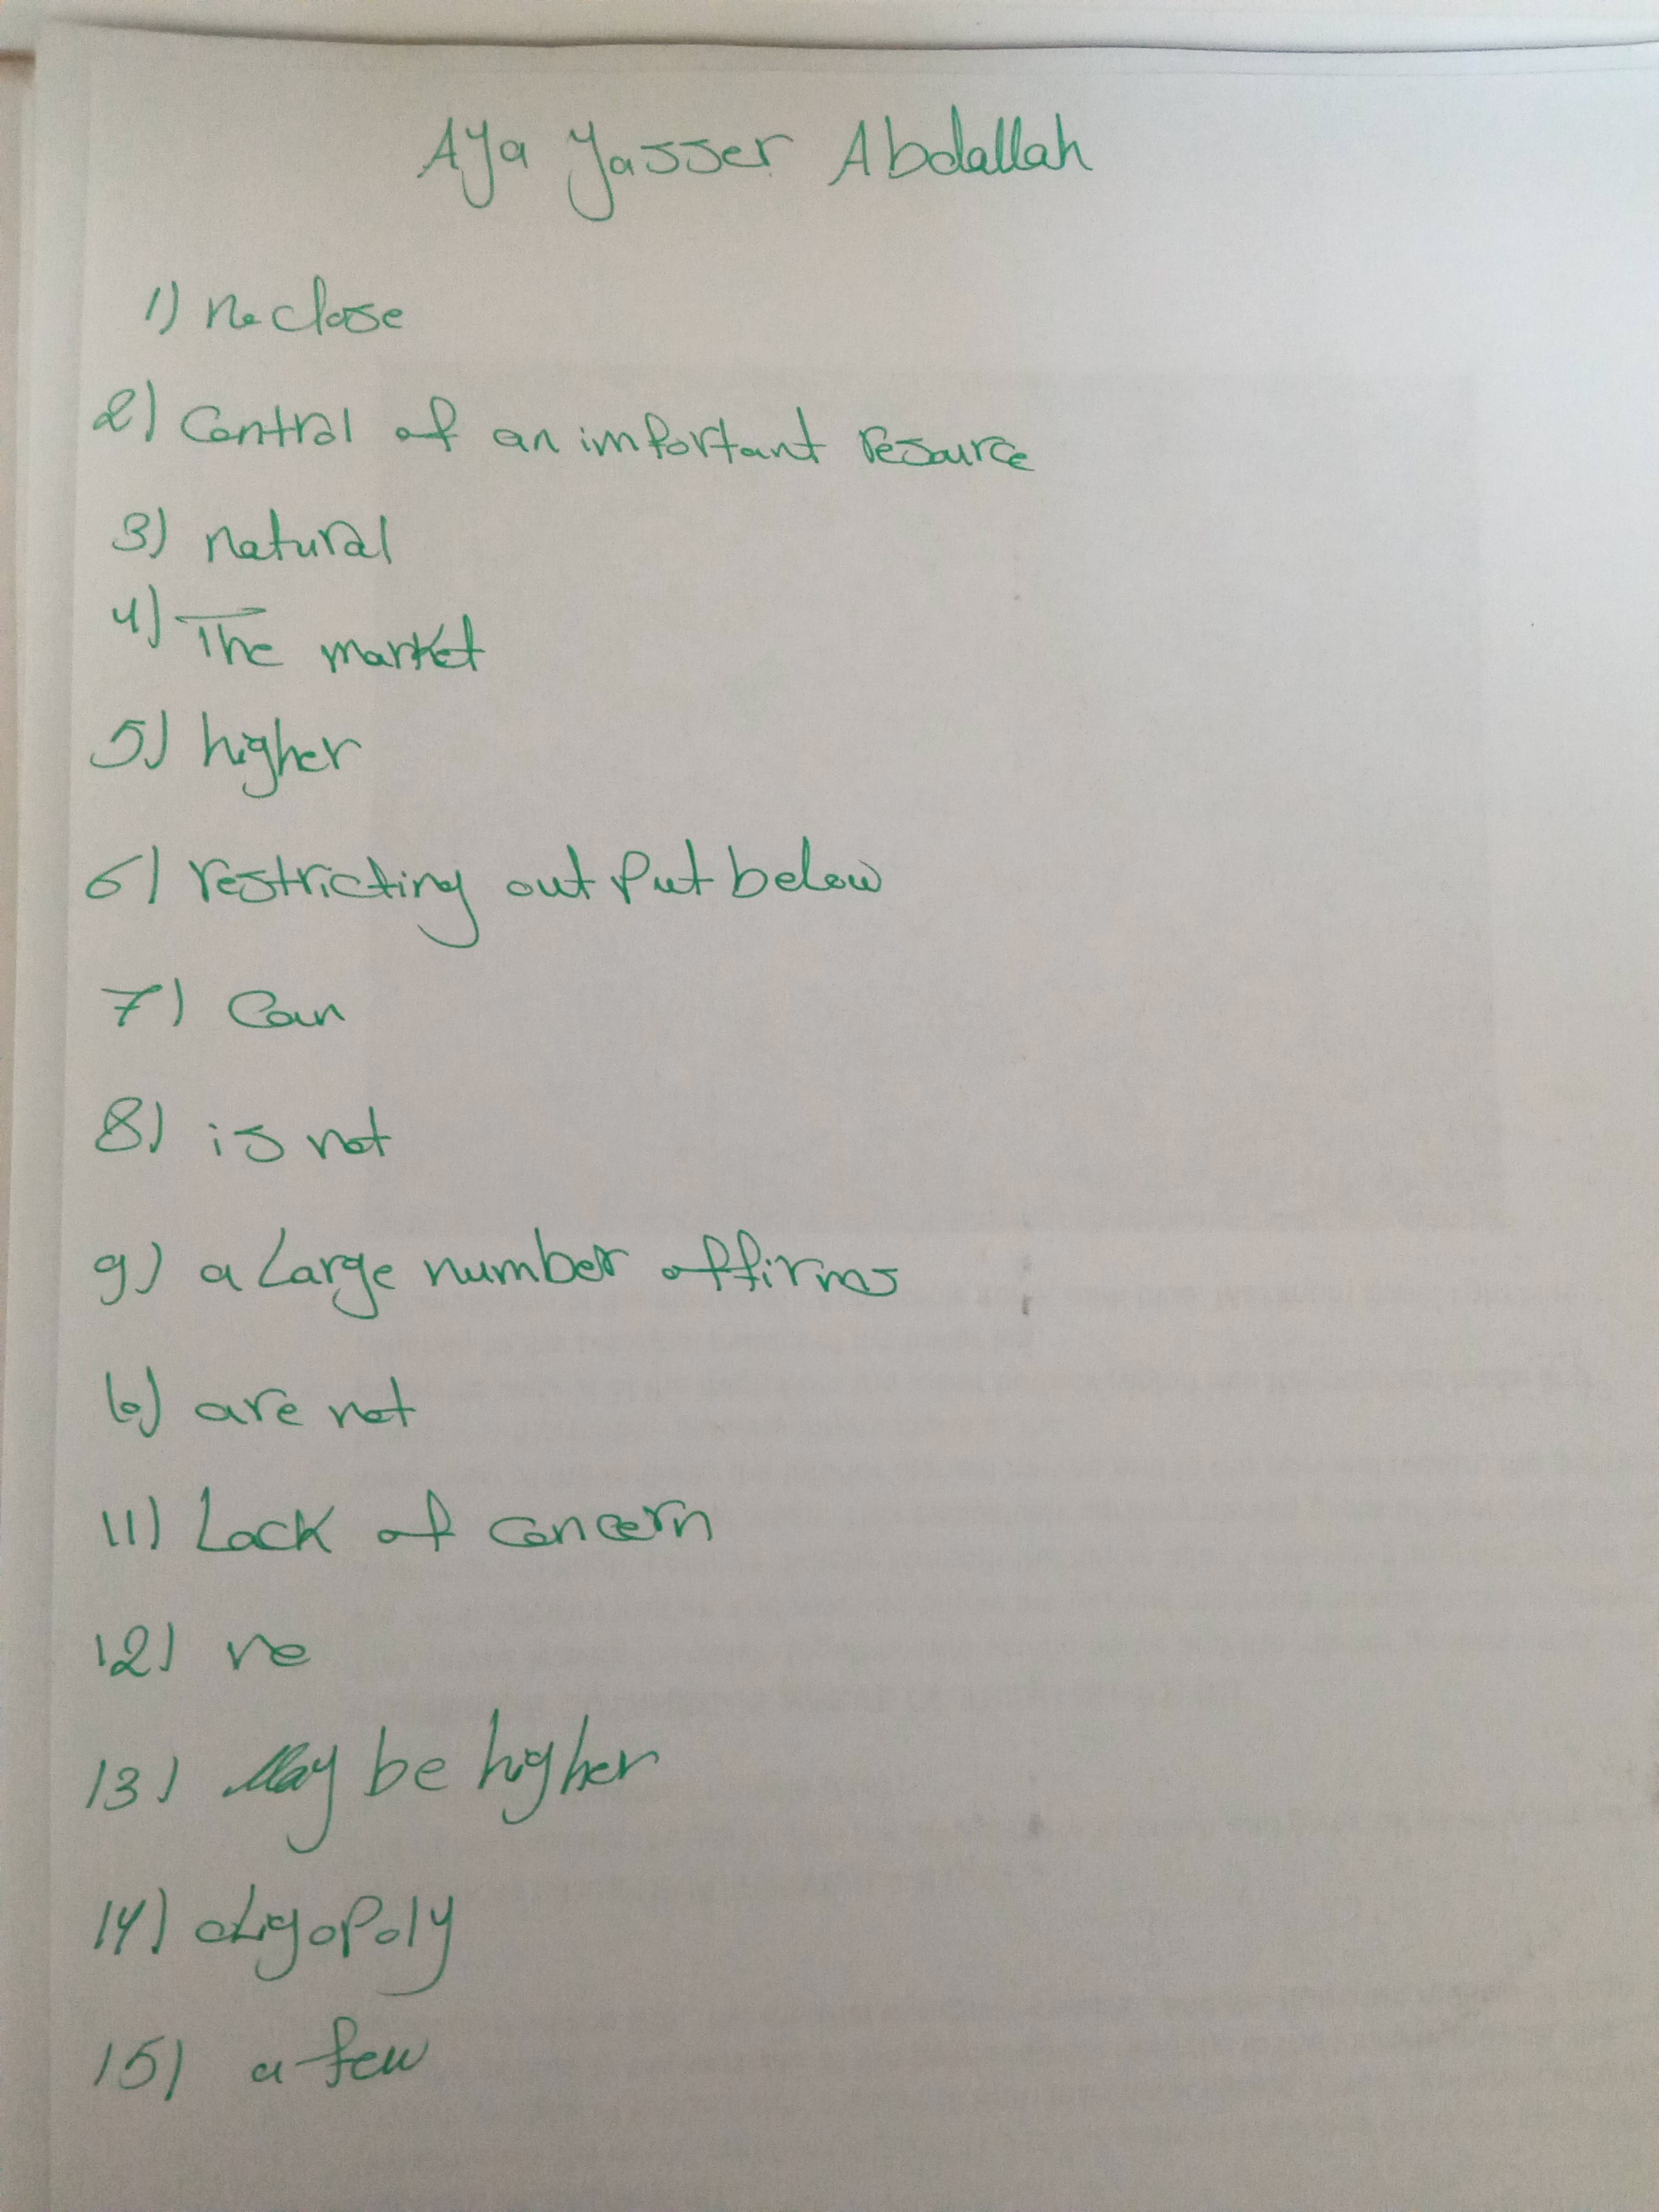 Aya Yasser Abdallah
1) no close
2) Control of an important resource
3) natural
4) The market
5) higher
6) restricting out put below
7) Can
8) is not
9) a Large number of firms
10) are not
11) Lack of concern
12) no
13) May be higher
14) oligopoly
15) a few